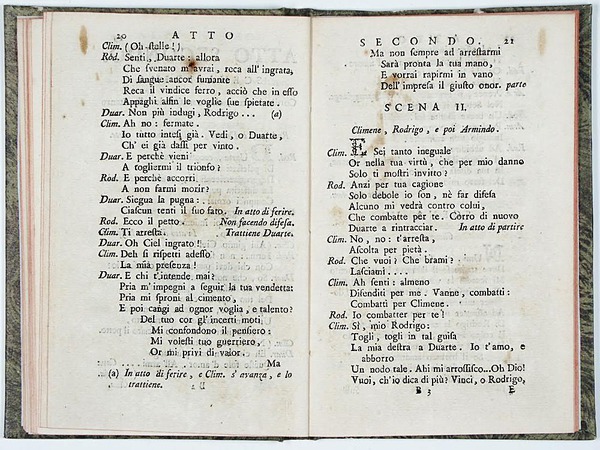 20 ATTO
Clim. (Oh stelle!)
Rod. Senti, Duarte: allora
Che svenato m'avrai, reca all' ingrata,
Di sangue ancor fumante
Reca il vindice ferro, acciò che in esso
Appaghi alfin le voglie sue spietate.
Duar. Non più indugi, Rodrigo... (a)
Clim. Ah no: fermate.
Io tutto intesi già. Vedi, o Duarte,
Ch' ei già dassi per vinto.
Duar. E perchè vieni
A togliermi il trionfo?
Rod. E perchè accorri
A non farmi morir?
Duar. Siegua la pugna:
Ciascun tenti il suo fato. In atto di ferire.
Rod. Ecco il petto. Non facendo difesa.
Clim. Ti arresta. Trattiene Duarte.
Duar. Oh Ciel ingrato!
Clim. Deh si rispetti adesso
La mia presenza!
Duar. E chi t'intende mai?
Pria m'impegni a seguir la tua vendetta:
Pria mi sproni al cimento,
E poi cangi ad ognor voglia, e talento?
Del tuo cor gl'incerti moti
Mi confondono il pensiero:
Mi volesti tuo guerriero,
Or mi privi di valor.
Ma
(a) In atto di ferire, e Clim. s'avanza, e lo
trattiene.
SECONDO. 21
Ma non sempre ad arrestarmi
Sarà pronta la tua mano,
E vorrai rapirmi in vano
Dell' impresa il giusto onor. parte
SCENA II.
Climene, Rodrigo, e poi Armindo.
Clim. E Sei tanto ineguale
Or nella tua virtù, che per mio danno
Solo ti mostri invitto?
Rod. Anzi per tua cagione
Solo debole io son, nè far difesa
Alcuno mi vedrà contro colui,
Che combatte per te. Corro di nuovo
Duarte a rintracciar. In atto di partire
Clim. No, no: t'arresta,
Ascolta per pietà.
Rod. Che vuoi? Che brami?
Lasciami....
Clim. Ah senti: almeno
Difenditi per me. Vanne, combatti:
Combatti per Climene.
Rod. Io combatter per te!
Clim. Sì, mio Rodrigo:
Togli, togli in tal guisa
La mia destra a Duarte. Io t'amo, e
abborro
Un nodo tale. Ahi mi arrossisco...Oh Dio!
Vuoi, ch'io dica di più? Vinci, o Rodrigo,
B 3 E